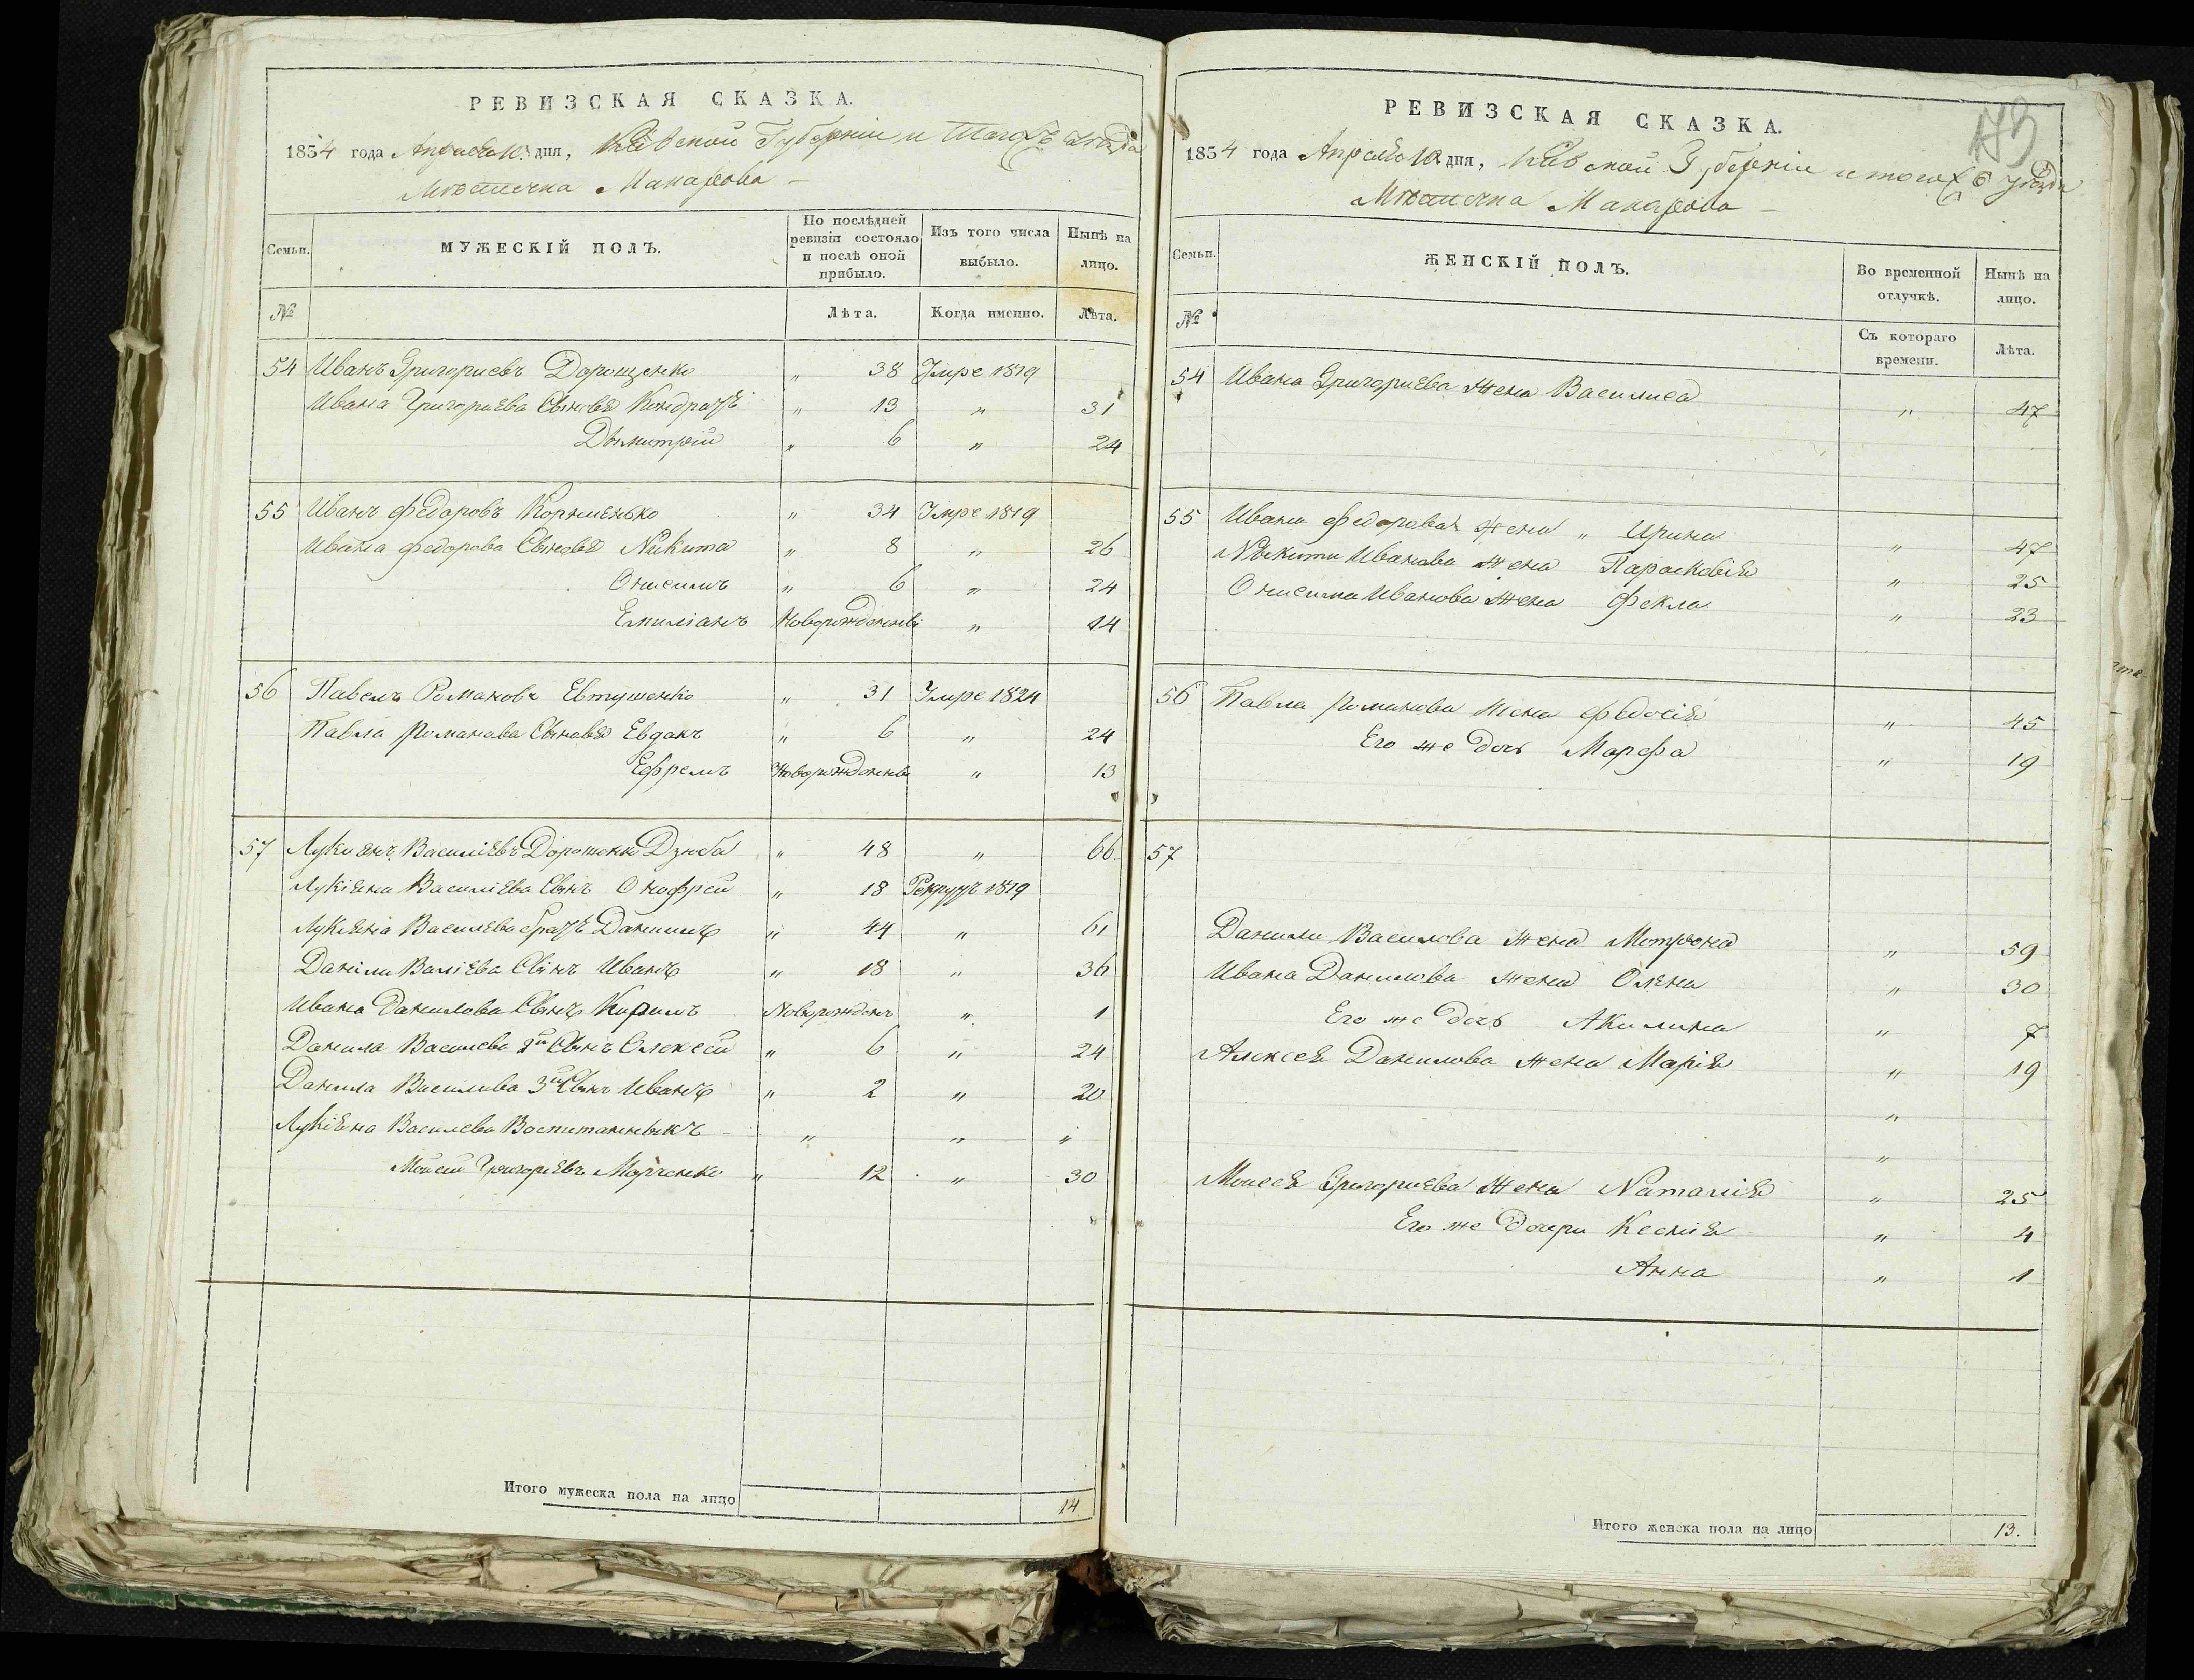 РЕВИЗСКАЯ СКАЗКА.
1834 года Апреля 10 дня, Кіевской Губерніи и того ж уезда
Мѣстечка Макарова
Семьи.
МУЖЕСКІЙ ПОЛЪ.
По послѣдней ревизіи состояло и послѣ оной прибыло.
Изъ того числа выбыло.
Нынѣ на лицо.
№
Лѣта.
Когда именно.
Лѣта.
54 Иванъ Григориевъ Дорошенко " 38 Умре 1819
Ивана Григориева Сыновья Кондратъ " 13 " 31
Дымитрій " 6 " 24
55 Иванъ Федоровъ " 34 Умре 1819
Ивана Федорова Сыновья Никита " 8 " 26
Онисимъ " 6 " 24
Емиліанъ Новорожденный " 14
56 Павелъ Романовъ Евтушенко " 31 Умре 1824
Павла Романова Сыновья Евдакъ " 6 " 24
Ефремъ Новорожденный " 13
57 Лукиянъ Василіевъ Дорошенко Дзюба " 48 " 66
Лукіяна Василіева Сынъ Онофрей " 18 Рекрутъ 1819
Лукіяна Василева братъ Данилъ " 44 " 61
Данила Валіева Сынъ Иванъ " 18 " 36
Ивана Данилова Сынъ Кирилъ Новорожденъ " 1
Данила Василева 2й Сынъ Олексей " 6 " 24
Данила Василива 3й Сынъ Иванъ " 2 " 20
Лукіяна Василева Воспитанныкъ " " "
Мойсей Григориевъ Марченко " 12 " 30
Итого мужеска пола на лицо 14
173
РЕВИЗСКАЯ СКАЗКА.
1834 года Апреля 10 дня, Кіевской Губерніи и того ж уезда
Мѣстечка Макарова
Семьи.
ЖЕНСКІЙ ПОЛЪ.
Во временной отлучкѣ.
Нынѣ на лицо.
№
Съ котораго времени.
Лѣта.
54 Ивана Григориева жена Василиса " 47
55 Ивана Федорова жена " Ирина " 47
Никити Иванова жена Парасковія " 25
Онисима Иванова жена Фекла " 23
56 Павла Романова жена Федосія " 45
Его же дочь Марфа " 19
57
Данили Василова жена Мотрона " 59
Ивана Данилова жена Олена " 30
Его же дочь Акилина " 7
Алексея Данилова жена Марія " 19
"
"
Моисея Григориева жена Наталія " 25
Его же дочери Ксенія " 4
Анна " 1
Итого женска пола на лицо 13.